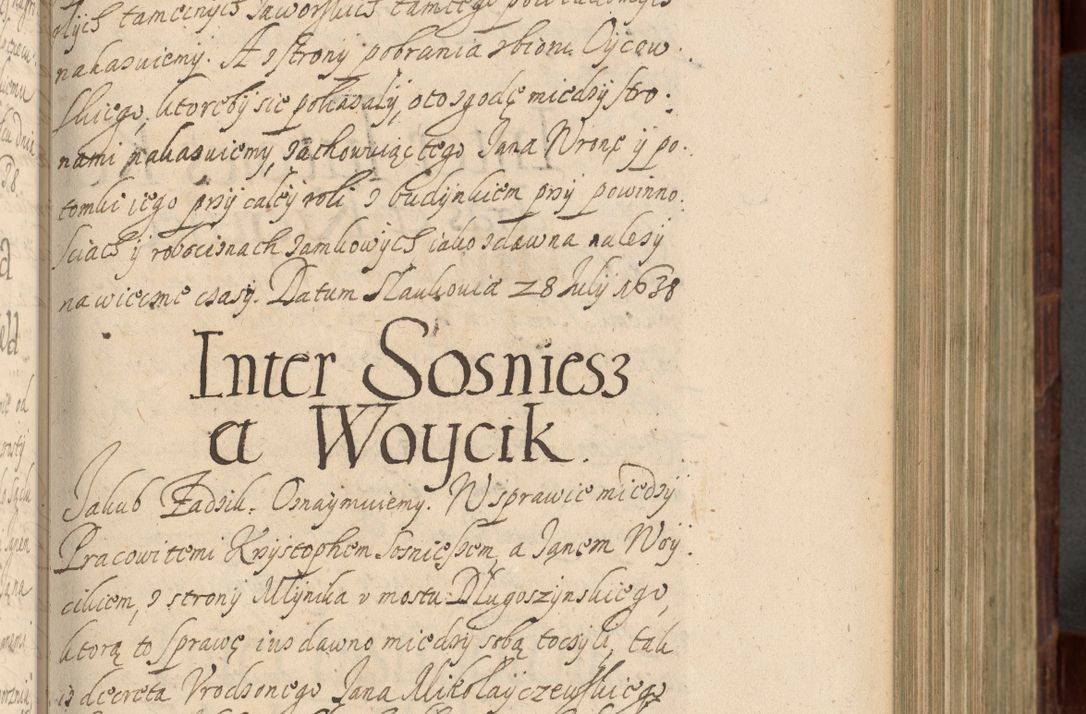 nakazuiemy. A z strony pobrania zbioru Oycow
skiego, ktoreby się pokazały, oto zgodę między stro-
nami nakazuiemy, zachowuiąc tego Jana Wronę y po-
tomki iego przy całey roli z budynkiem przy powinno-
sciach y robociznach zamkowych iako zdawna należy
na wieczne czasy. Datum Slaukouiæ 28 Julij 1638
Inter Sosniesz
et Woycik.
Jakub Zadzik. Oznaymuiemy. W sprawie między
Pracowitemi Krzystophem Sosnieszem, a Janem Woy-
cikiem, z strony Młynika v mostu Długoszynskiego,
ktorą to sprawę iuż dawno między sobą toczyli, tak
iż decreta Vrodzonego Jana Mikołayczewskiego